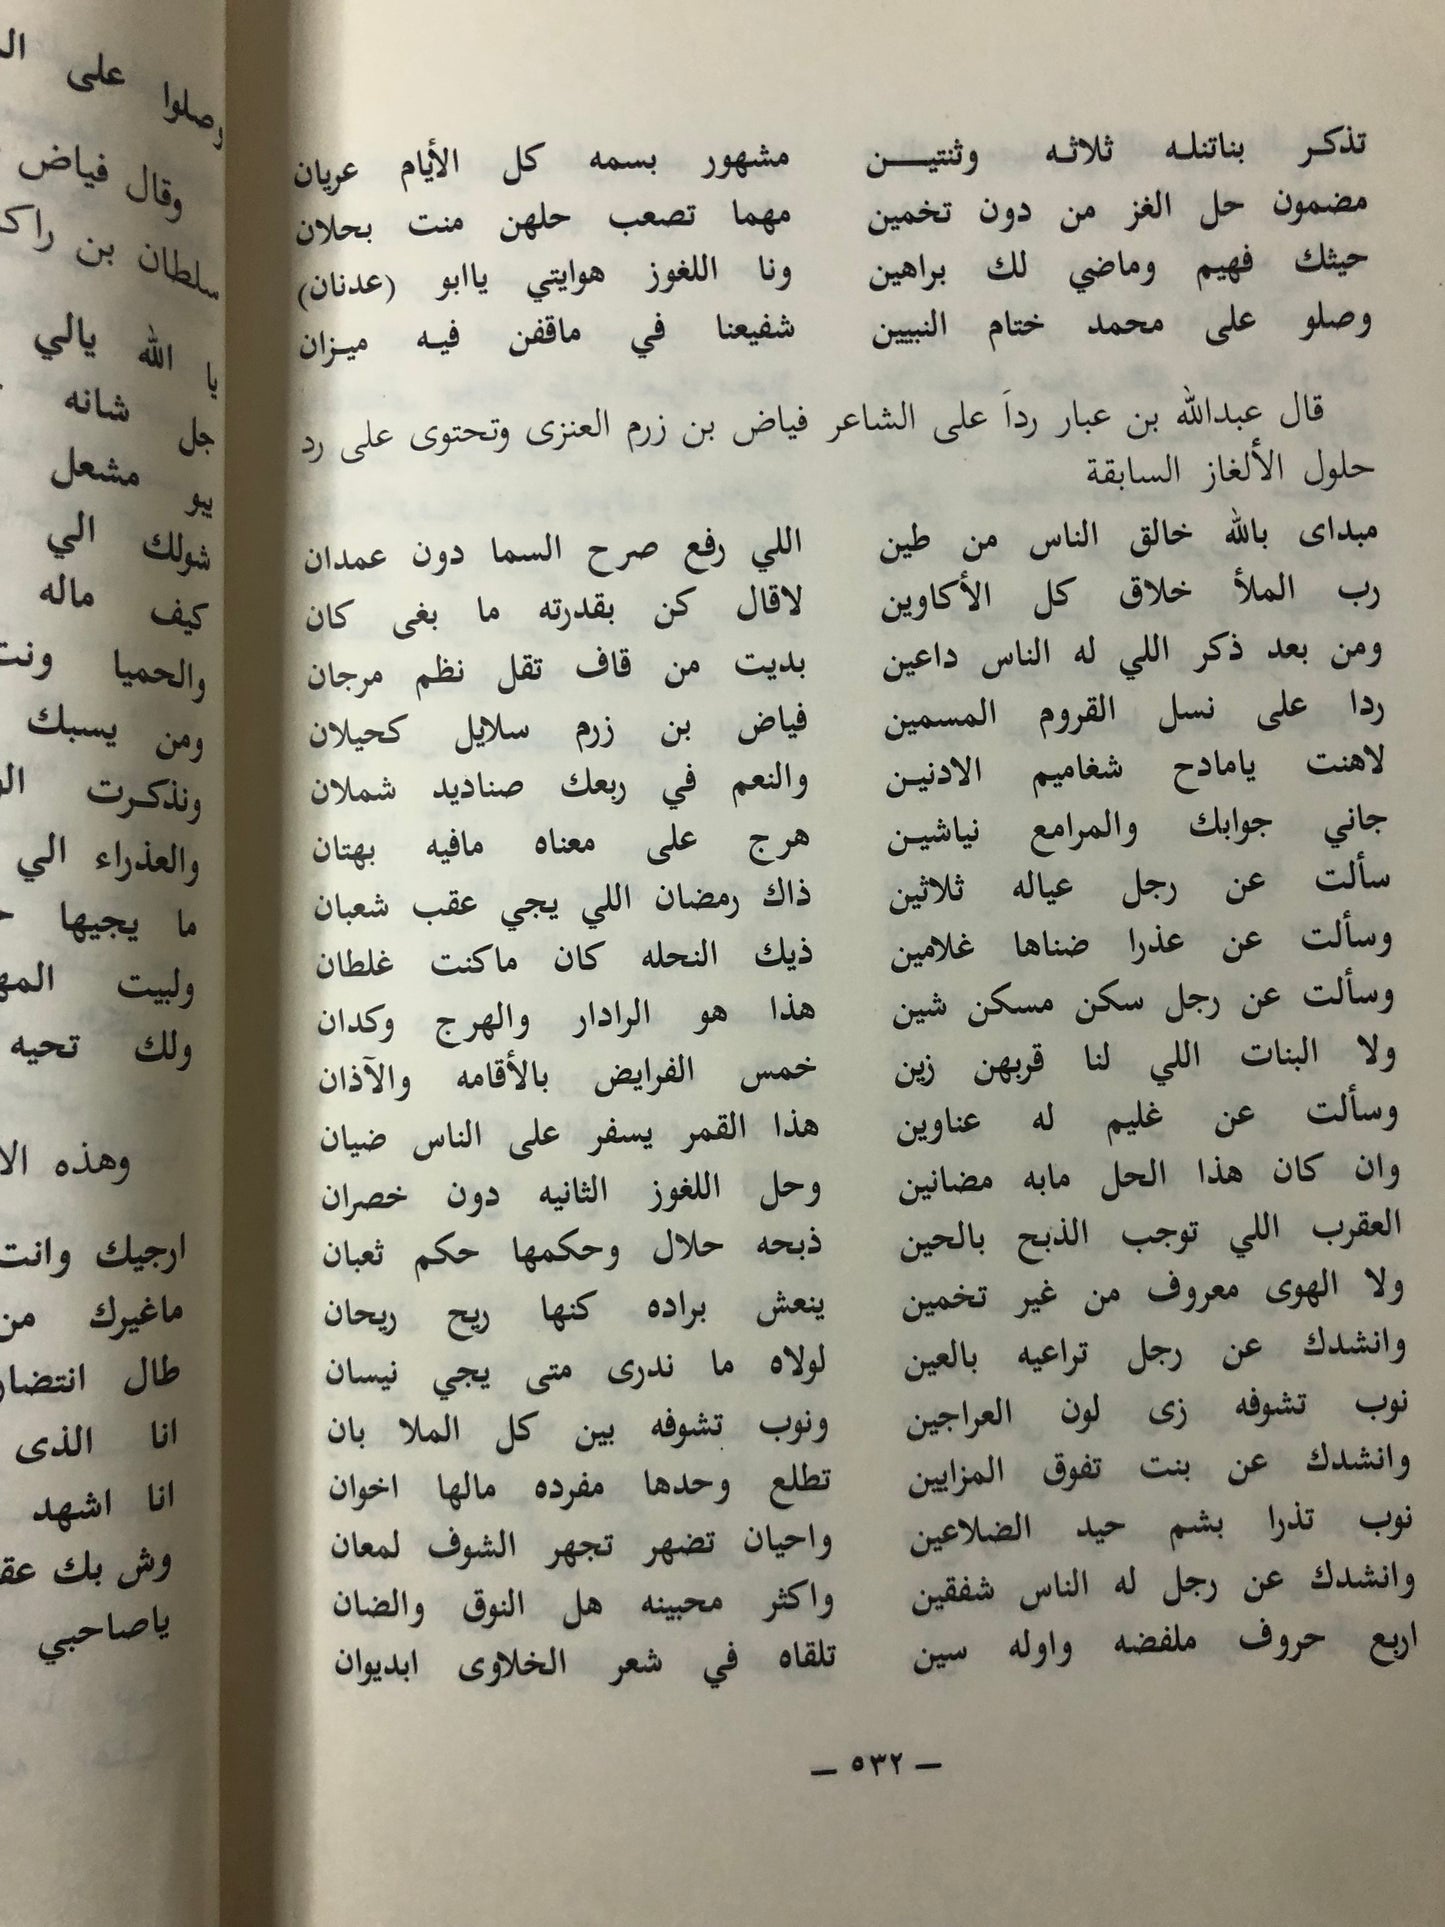 تذكر بناتنله ثلاثه وثنتيـــن مشهور بسمه كل الأيام عريان
مضمون حل الغز من دون تخمين مهما تصعب حلهن منت بحلان
حيثك فهيم وماضي لك براهين ونا اللغوز هوايتي ياابو (عدنان)
وصلو على محمد ختام النبيين شفيعنا في ماقفن فيه ميزان
قال عبدالله بن عبار رداَ على الشاعر فياض بن زرم العنزى وتحتوى على رد
حلول الألغاز السابقة
مبداى بالله خالق الناس من طين اللي رفع صرح السما دون عمدان
رب الملأ خلاق كل الأكاوين لاقال كن بقدرته ما بغى كان
ومن بعد ذكر اللي له الناس داعين بديت من قاف تقل نظم مرجان
ردا على نسل القروم المسمين فياض بن زرم سلايل كحيلان
لاهنت يامادح شغاميم الادنين والنعم في ربعك صناديد شملان
جاني جوابك والمرامع نياشين هرج على معناه مافيه بهتان
سألت عن رجل عياله ثلاثين ذاك رمضان اللي يجي عقب شعبان
وسألت عن عذرا ضناها غلامين ذيك النحله كان ماكنت غلطان
وسألت عن رجل سكن مسكن شين هذا هو الرادار والهرج وكدان
ولا البنات اللي لنا قربهن زين خمس الفرايض بالأقامه والآذان
وسألت عن غليم له عناوين هذا القمر يسفر على الناس ضيان
وان كان هذا الحل مابه مضانين وحل اللغوز الثانيه دون خصران
العقرب اللي توجب الذبح بالحين ذبحه حلال وحكمها حكم ثعبان
ولا الهوى معروف من غير تخمين ينعش براده كنها ريح ريحان
وانشدك عن رجل تراعيه بالعين لولاه ما ندرى متى يجي نيسان
نوب تشوفه زى لون العراجين ونوب تشوفه بين كل الملا بان
وانشدك عن بنت تفوق المزايين تطلع وحدها مفرده مالها اخوان
نوب تذرا بشم حيد الضلاعين واحيان تضهر تجهر الشوف لمعان
وانشدك عن رجل له الناس شفقين واكثر محبينه هل النوق والضان
اربع حروف ملفضه واوله سين تلقاه في شعر الخلاوى ابديوان
— ٥٣٢ —
وصلوا على
وقال فياض
سلطان بن
يا الله يالي
جل شانه
يبو مشعل
شولك الي
كيف ماله
والحميا ونت
ومن يسبك
ونذكرت
والعذراء الي
ما يجيها
ولبيت
ولك تحيه
وهذه
ارجيك وانت
ماغيرك من
طال
انا الذى
انا اشهد
وش بك
ياصاحبي